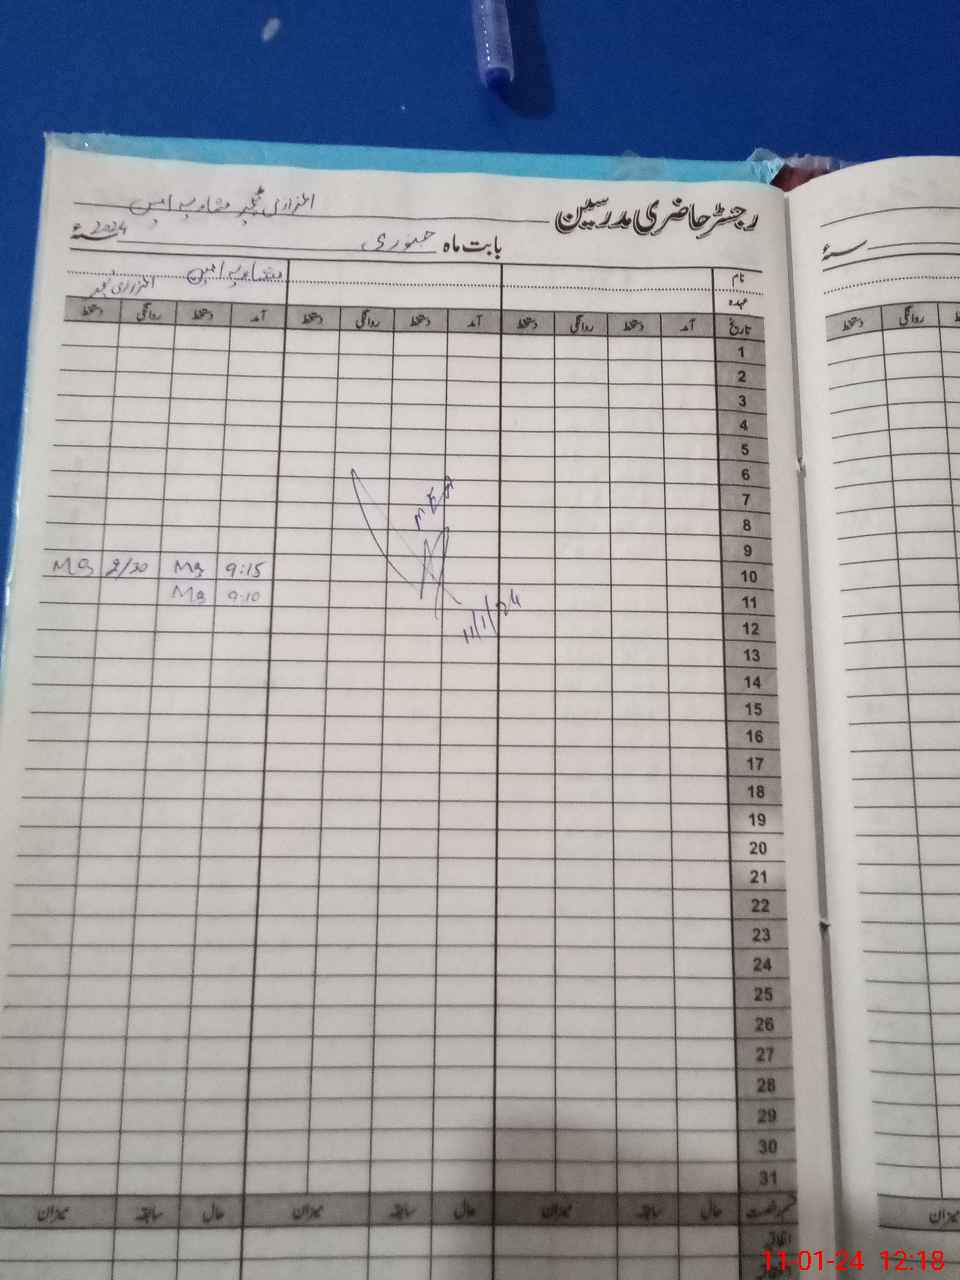 رجسٹر حاضری مدرسین
بابت ماہ جنوری 2024 سنہء
سنہء
نام
عہدہ
تاریخ آمد دستخط روانگی دستخط آمد دستخط روانگی دستخط آمد دستخط روانگی دستخط
روانگی دستخط
1
2
3
4
5
6
7
8
9
10 9:15 Mg 2/30 Mg
11 9:10 Mg
MEA
11/1/24
12
13
14
15
16
17
18
19
20
21
22
23
24
25
26
27
28
29
30
31
قسم رخصت حال سابقہ میزان حال سابقہ میزان حال سابقہ میزان
میزان
اتفاقیہ
11-01-24 12:18